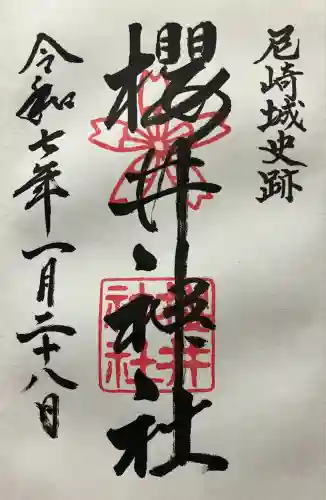 尼崎城史跡
櫻井神社
櫻井神社
令和七年一月二十八日